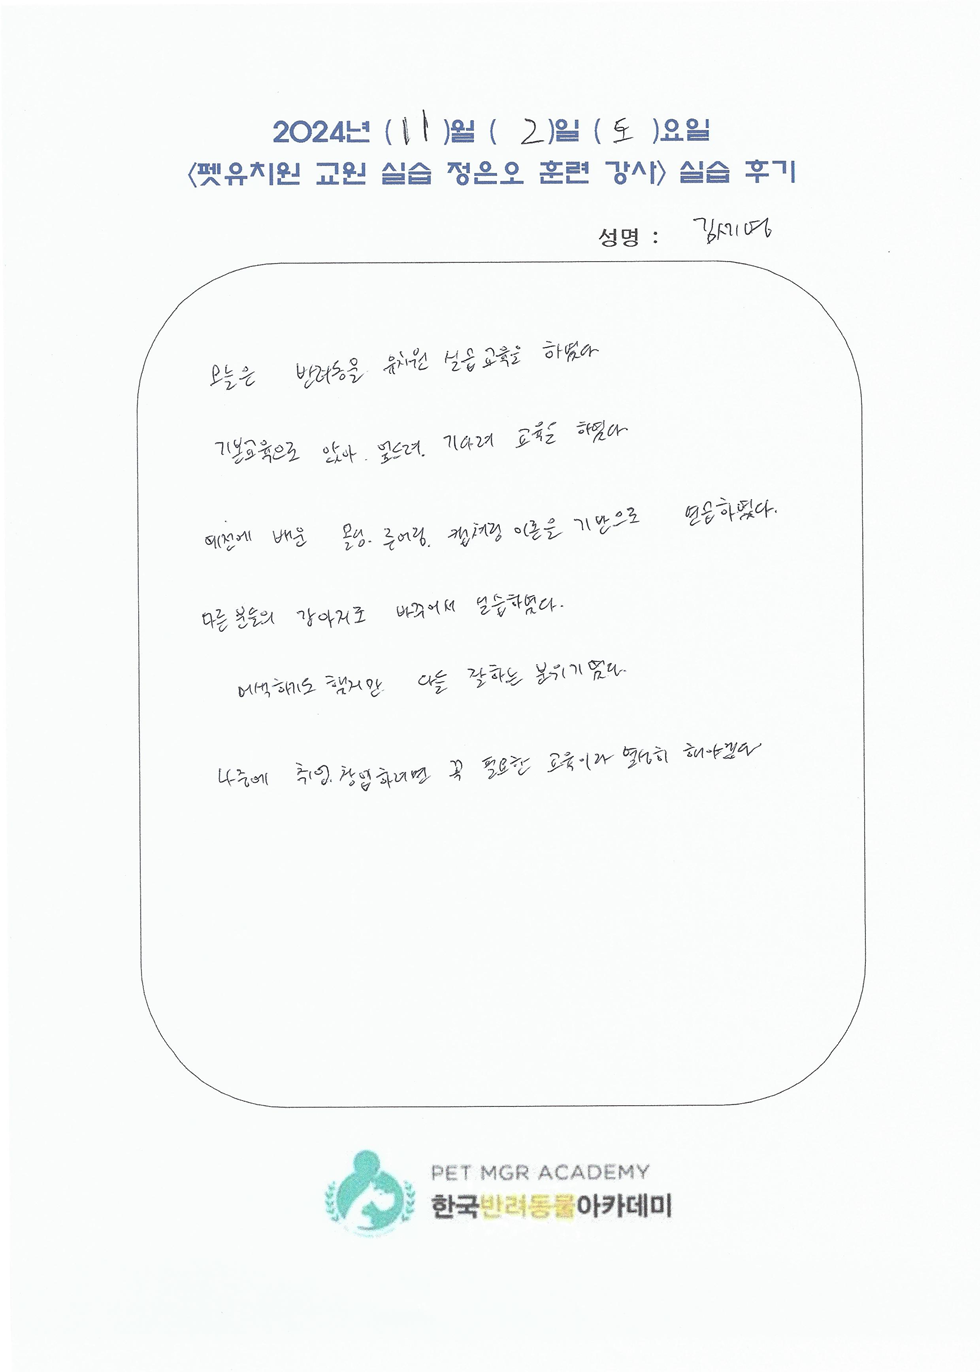 2024년 (11)월 ( 2)일 (토)요일
<펫유치원 교원 실습 정은오 훈련 강사> 실습 후기
성명 : 김기영
오늘은 반려동물 유치원 실습교육을 하였다
기본교육으로 앉아. 엎드려. 기다려 교육을 하였다
예전에 배운 몰딩. 루어링. 캡쳐링 이론을 기반으로 연습하였다.
다른분들의 강아지로 바꾸어서 실습하였다.
어색하기도 했지만 다들 잘하는 분위기였다.
나중에 취업.창업하려면 꼭 필요한 교육이라 열심히 해야겠다
PET MGR ACADEMY
한국반려동물아카데미